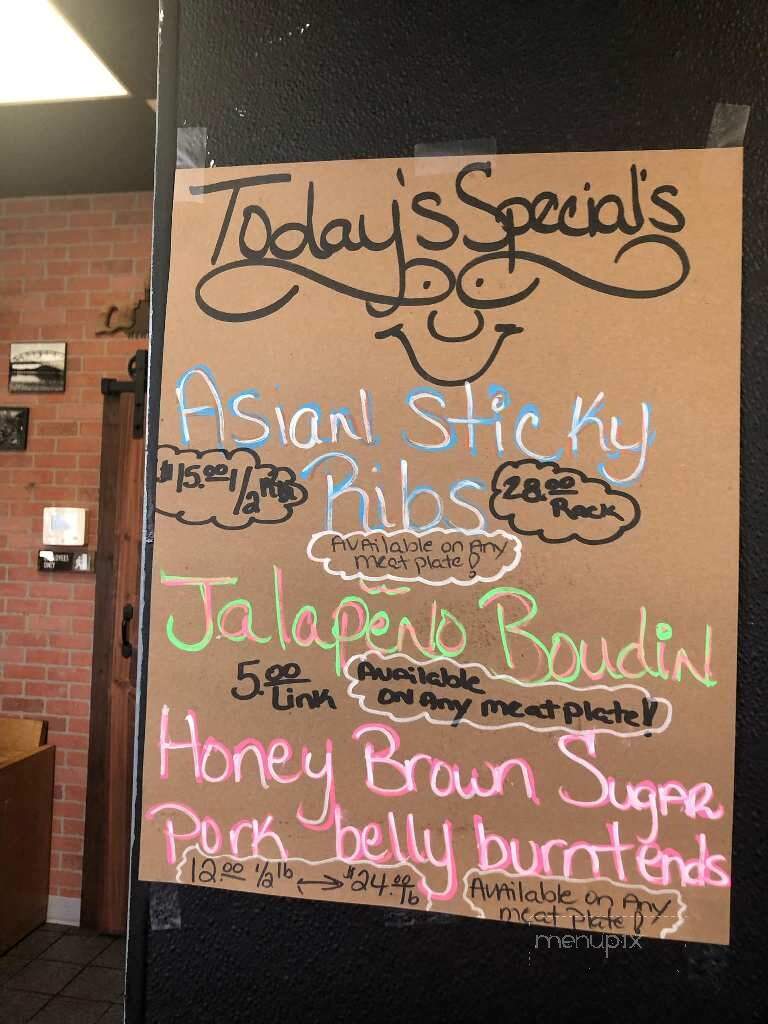 Today's Special's
Asian Sticky
Ribs
$15.00 1/2
28.00
Rack
Available on Any
meat plate!
Jalapeño Boudin
5.00
Link
Available
on Any meat plate!
Honey Brown Sugar
Pork belly burnt ends
12.00 1/2 lb ↔ $24.00
lb
Available on Any
meat plate!
menupix